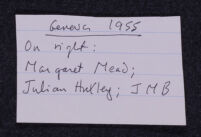 Geneva 1955
On right:
Margaret Mead;
Julian Huxley; J M B